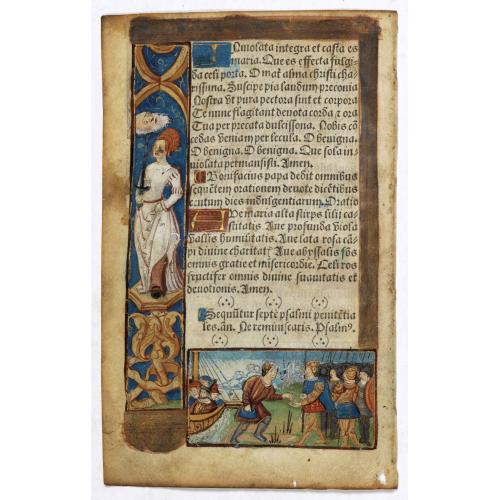 Inuiolata integra et casta es
maria. Que es effecta fulgi⸗
da celi porta. O mať alma christi cha⸗
rissima. Suscipe pia laudum preconia
Nostra vt pura pectora sint et corpora
Te nunc flagitant deuota corda ⁊ ora
Tua per precata dulcissona. Nobis cō
cedas veniam per secula. O benigna.
O benigna. O benigna. Que sola in⸗
uiolata permansisti. Amen.
Bonifacius papa dedit omnibus
sequētem orationem deuote dicētibus
centum dies indulgentiarum. Oratio
Aue maria alta stirps lilii ca⸗
stitatis. Aue profunda viola
vallis humilitatis. Aue lata rosa cā⸗
pi diuine charitat Aue abyssalis fōs
omnis gratie et misericordie. Celi ros
fructifer omnis diuine suauitatis et
deuotionis. Amen.
Sequūtur septē psalmi penitētia
les. añ. Ne reminiscaris. Psalmꝰ.